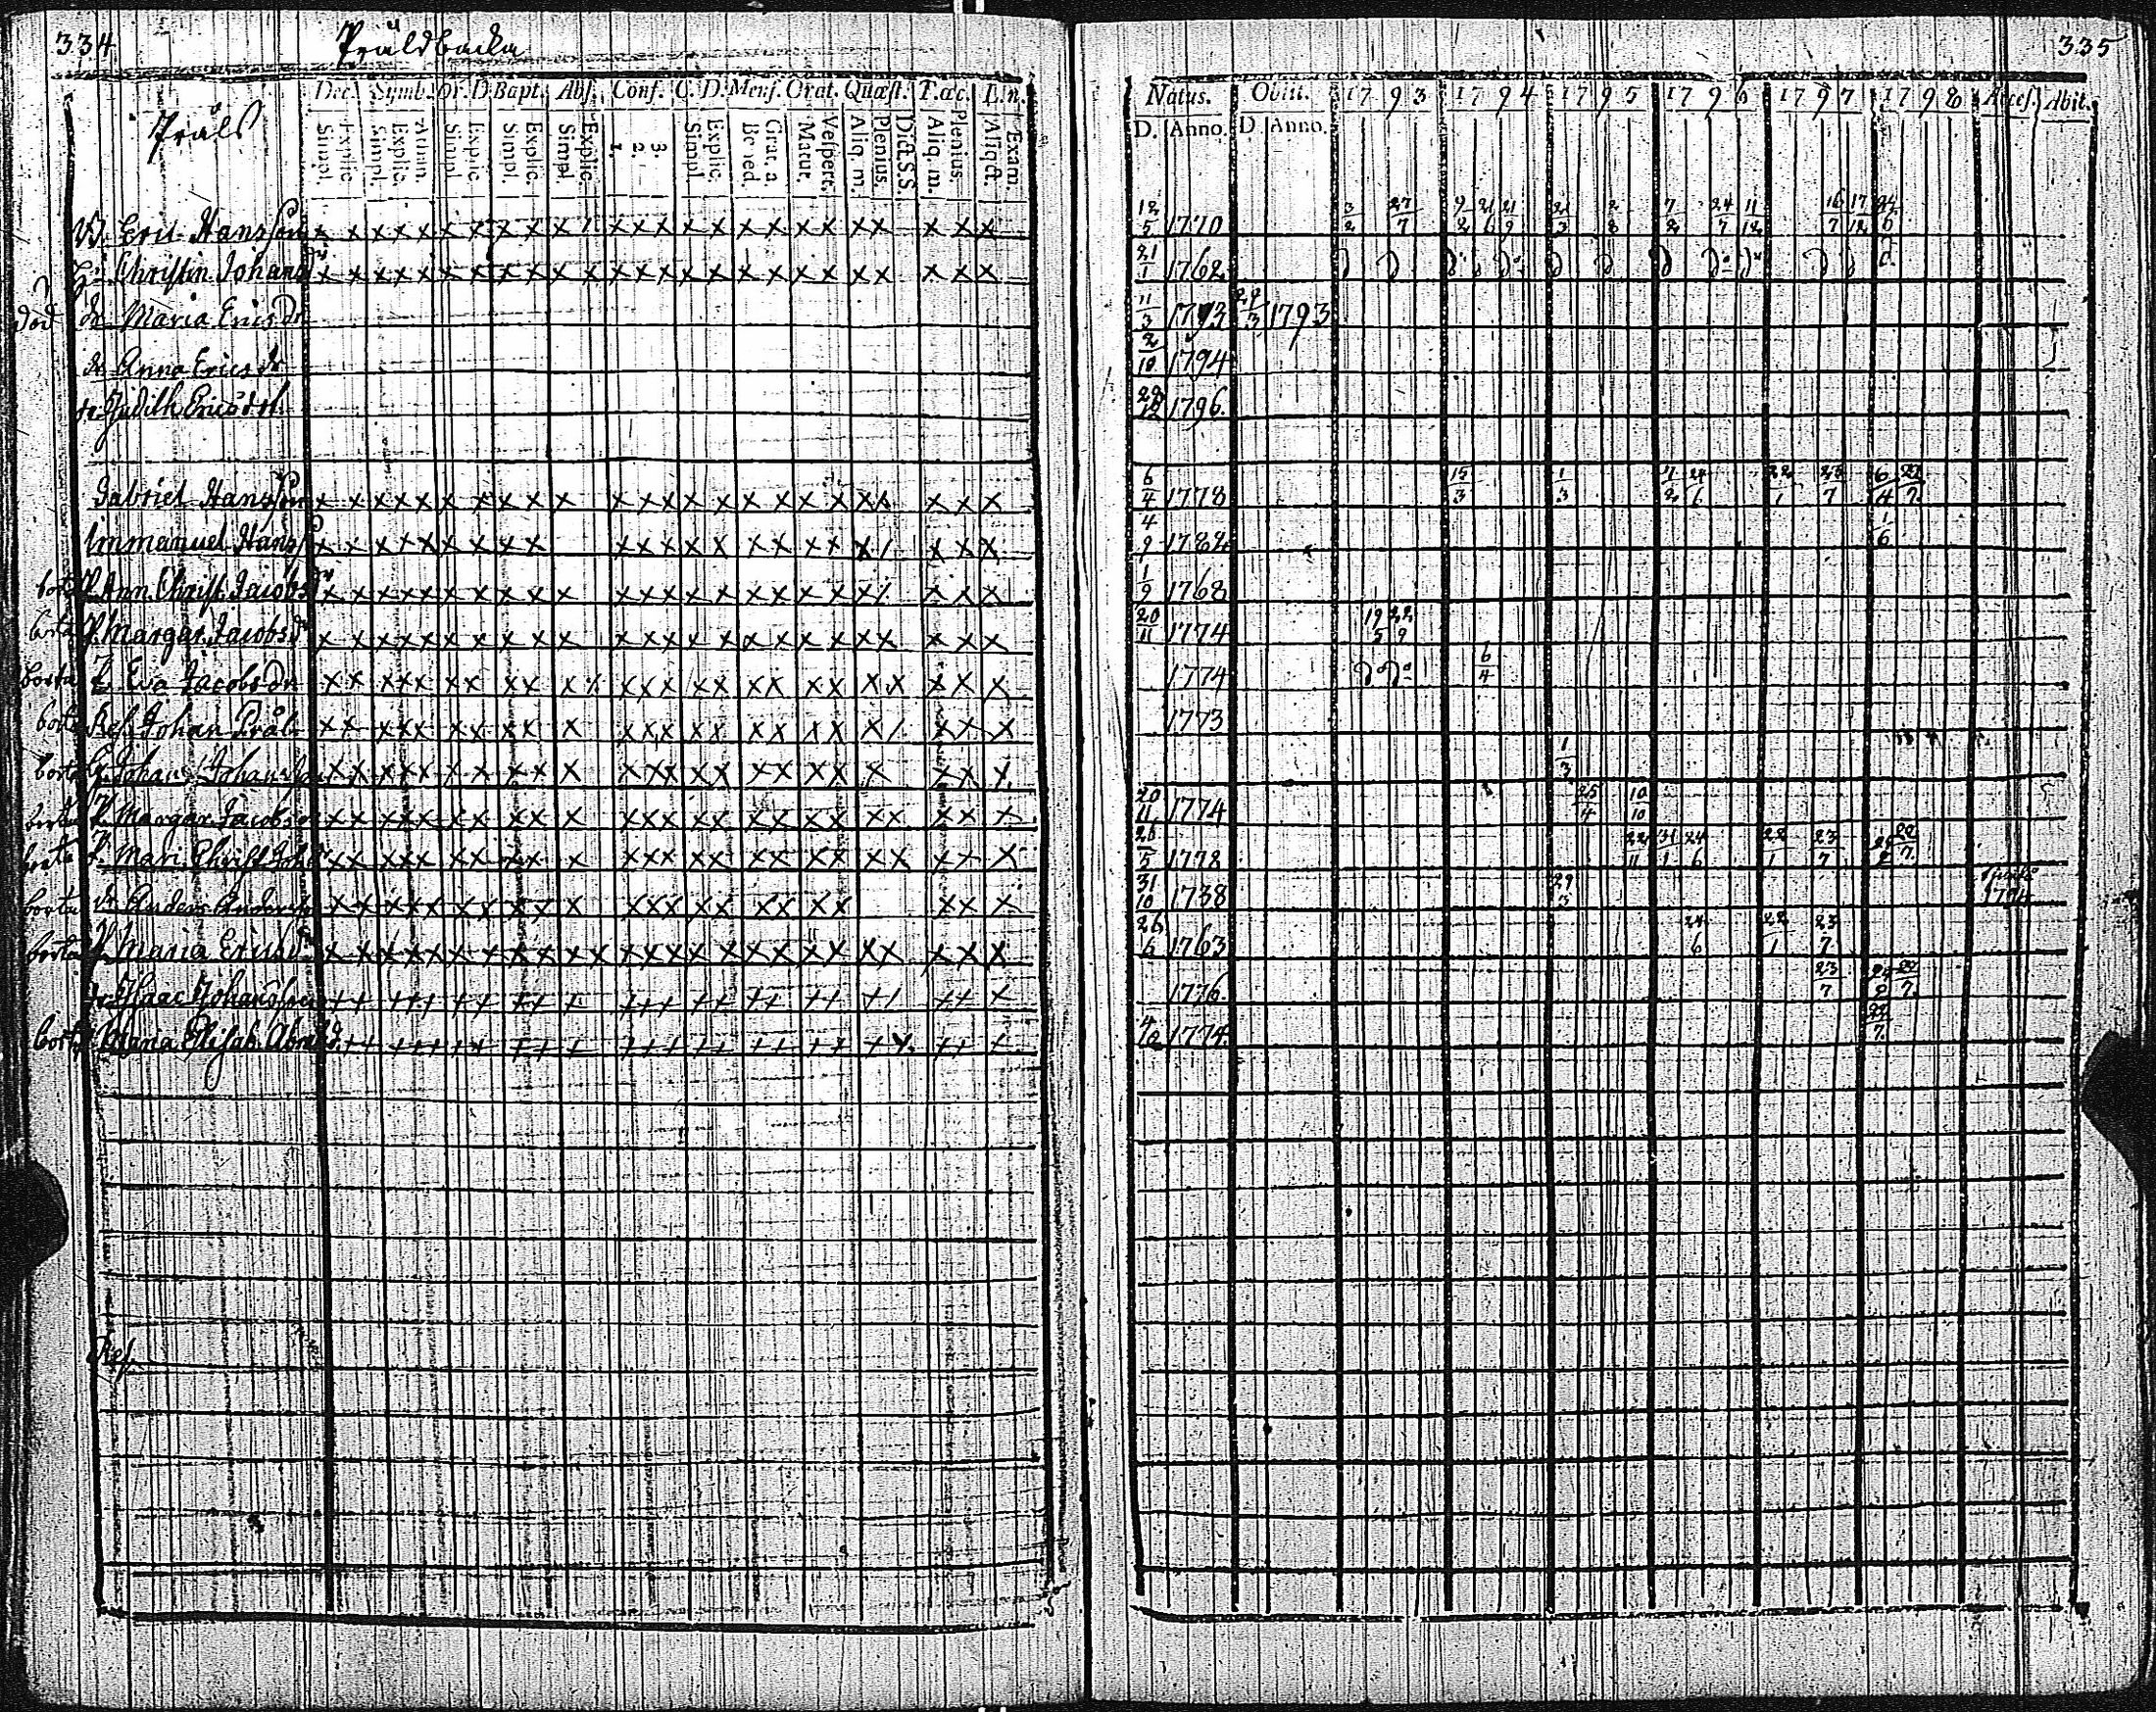 334
Pråldbacka
Pråls
Dec. Symb. Or. D. Bapt. Abs. Conf. C. D. Mens. Orat. Quæst. T. œc. L. n.
Simpl. Explic. Simpl. Explic. Athan. Simpl. Explic. Simpl. Explic. Simpl. Explic. 1. 2. 3. Simpl. Explic. Bened. Grat. a. Matut. Vespert. Aliq. m. Plenius. Dict. S.S. Aliq. m. Plenius. Aliqst. Exam.
Eric Hansson
Christin Johans dr
död dr Maria Erics dr
dr Anna Erics dr
dr Judith Erics dr
Gabriel Hansson
Immanuel Hanss
borta P. Ann Christ. Jacobs dr
borta P. Margar. Jacobs dr
borta P. Eva Jacobs dr
borta Ref. Johan Prål
borta Johan Johansson
borta P. Margar. Jacobs dr
borta P. Mari Christ. Joh
borta dr Anders Andersson
borta P. Maria Erics dr
dr. Isaac Johansson
borta Maria Elisab. Abra
Ref.
335
Natus. Obiit. 1793 1794 1795 1796 1797 1798 Acces. Abit.
D. Anno. D Anno.
12/5 1770 3/2 27/7 9/2 21/6 21/9 21/3 2/8 7/2 24/7 11/12 16/7 17/12 24/6
21/1 1762
11/3 1793 29/3 1793
2/10 1794
29/12 1796.
6/4 1778 15/3 1/3 7/2 24/6 22/1 23/7 6/4 22/7
4/9 1782 1/6
1/9 1768
20/11 1774 19/5 22/9
1774 6/4
1773
1/3
20/11 1774 25/4 10/10
26/5 1778 22/11 31/1 24/6 22/1 23/7 22/7
31/10 1738 29/3 1794
26/6 1763 24/6 22/1 23/7
1776. 23/7 22/7
4/10 1774.